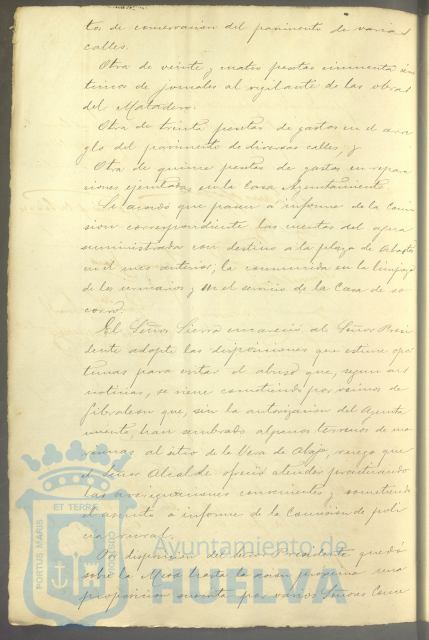 to, de conservacion del pavimento de varias
calles.
Otra de veinte y cuatro pesetas cincuenta cén
timos de jornales al vigilante de las obras
del Matadero.
Otra de treinta pesetas de gastos en el arre
glo del pavimento de diversas calles, y
Otra de quince pesetas de gastos en repara
ciones ejecutadas en la Casa Ayuntamiento.
Se acordó que pasen a informe de la Comi
sion correspondiente las cuentas del agua
suministrada con destino a la plaza de Abastos
en el mes anterior, la consumida en la limpieza
de los urinarios y en el servicio de la Casa de so
corro.
El Señor Sierra encareció al Señor Presi
dente adopte las disposiciones que estime opor
tunas para evitar el abuso que, segun sus
noticias, se viene cometiendo por vecinos de
Gibraleon que, sin la autorizacion del Ayunta
miento, han sembrado algunos terrenos de ma
rismas al sitio de la Vera de Abajo, ruego que
el Señor Alcalde ofreció atender practicando
las averiguaciones convenientes y sometiendo
el asunto a informe de la Comision de poli
cia rural.
Por disposicion del Señor Presidente quedó
sobre la Mesa hasta la sesion proxima una
proposicion suscrita por varios Señores Conce
PORTUS MARIS
ET TERRE
CUSTODIA
Ayuntamiento de
HUELVA